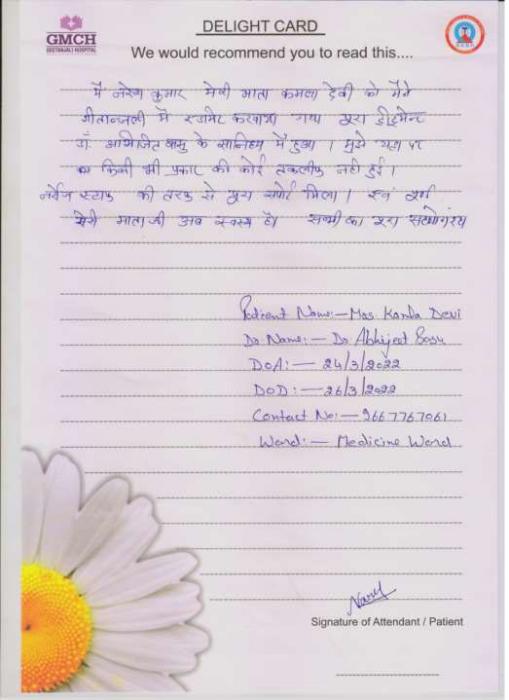 GMCH
GEETANJALI HOSPITAL
DELIGHT CARD
We would recommend you to read this....
मैं नरेश कुमार मेरी माता कमला देवी को मैंने
गीतान्जली में एडमिट करवाया गया पूरा ट्रीटमेन्ट
डॉ. अभिजित बासु के सानिध्य में हुआ । मुझे यहा पर
किसी भी प्रकार की कोई तकलीफ नही हुई ।
नर्सेज स्टाफ की तरफ से पूरा सपोर्ट मिला । एवं पूर्ण
मेरी माताजी अब स्वस्थ है। सभी का पूरा सहयोग रहा
Patient Name:- Mrs. Kamla Devi
Dr. Name:- Dr. Abhijeet Basu
DOA:- 24/3/2022
DOD:- 26/3/2022
Contact No:- 9667767061
Ward:- Medicine Ward
Signature of Attendant / Patient